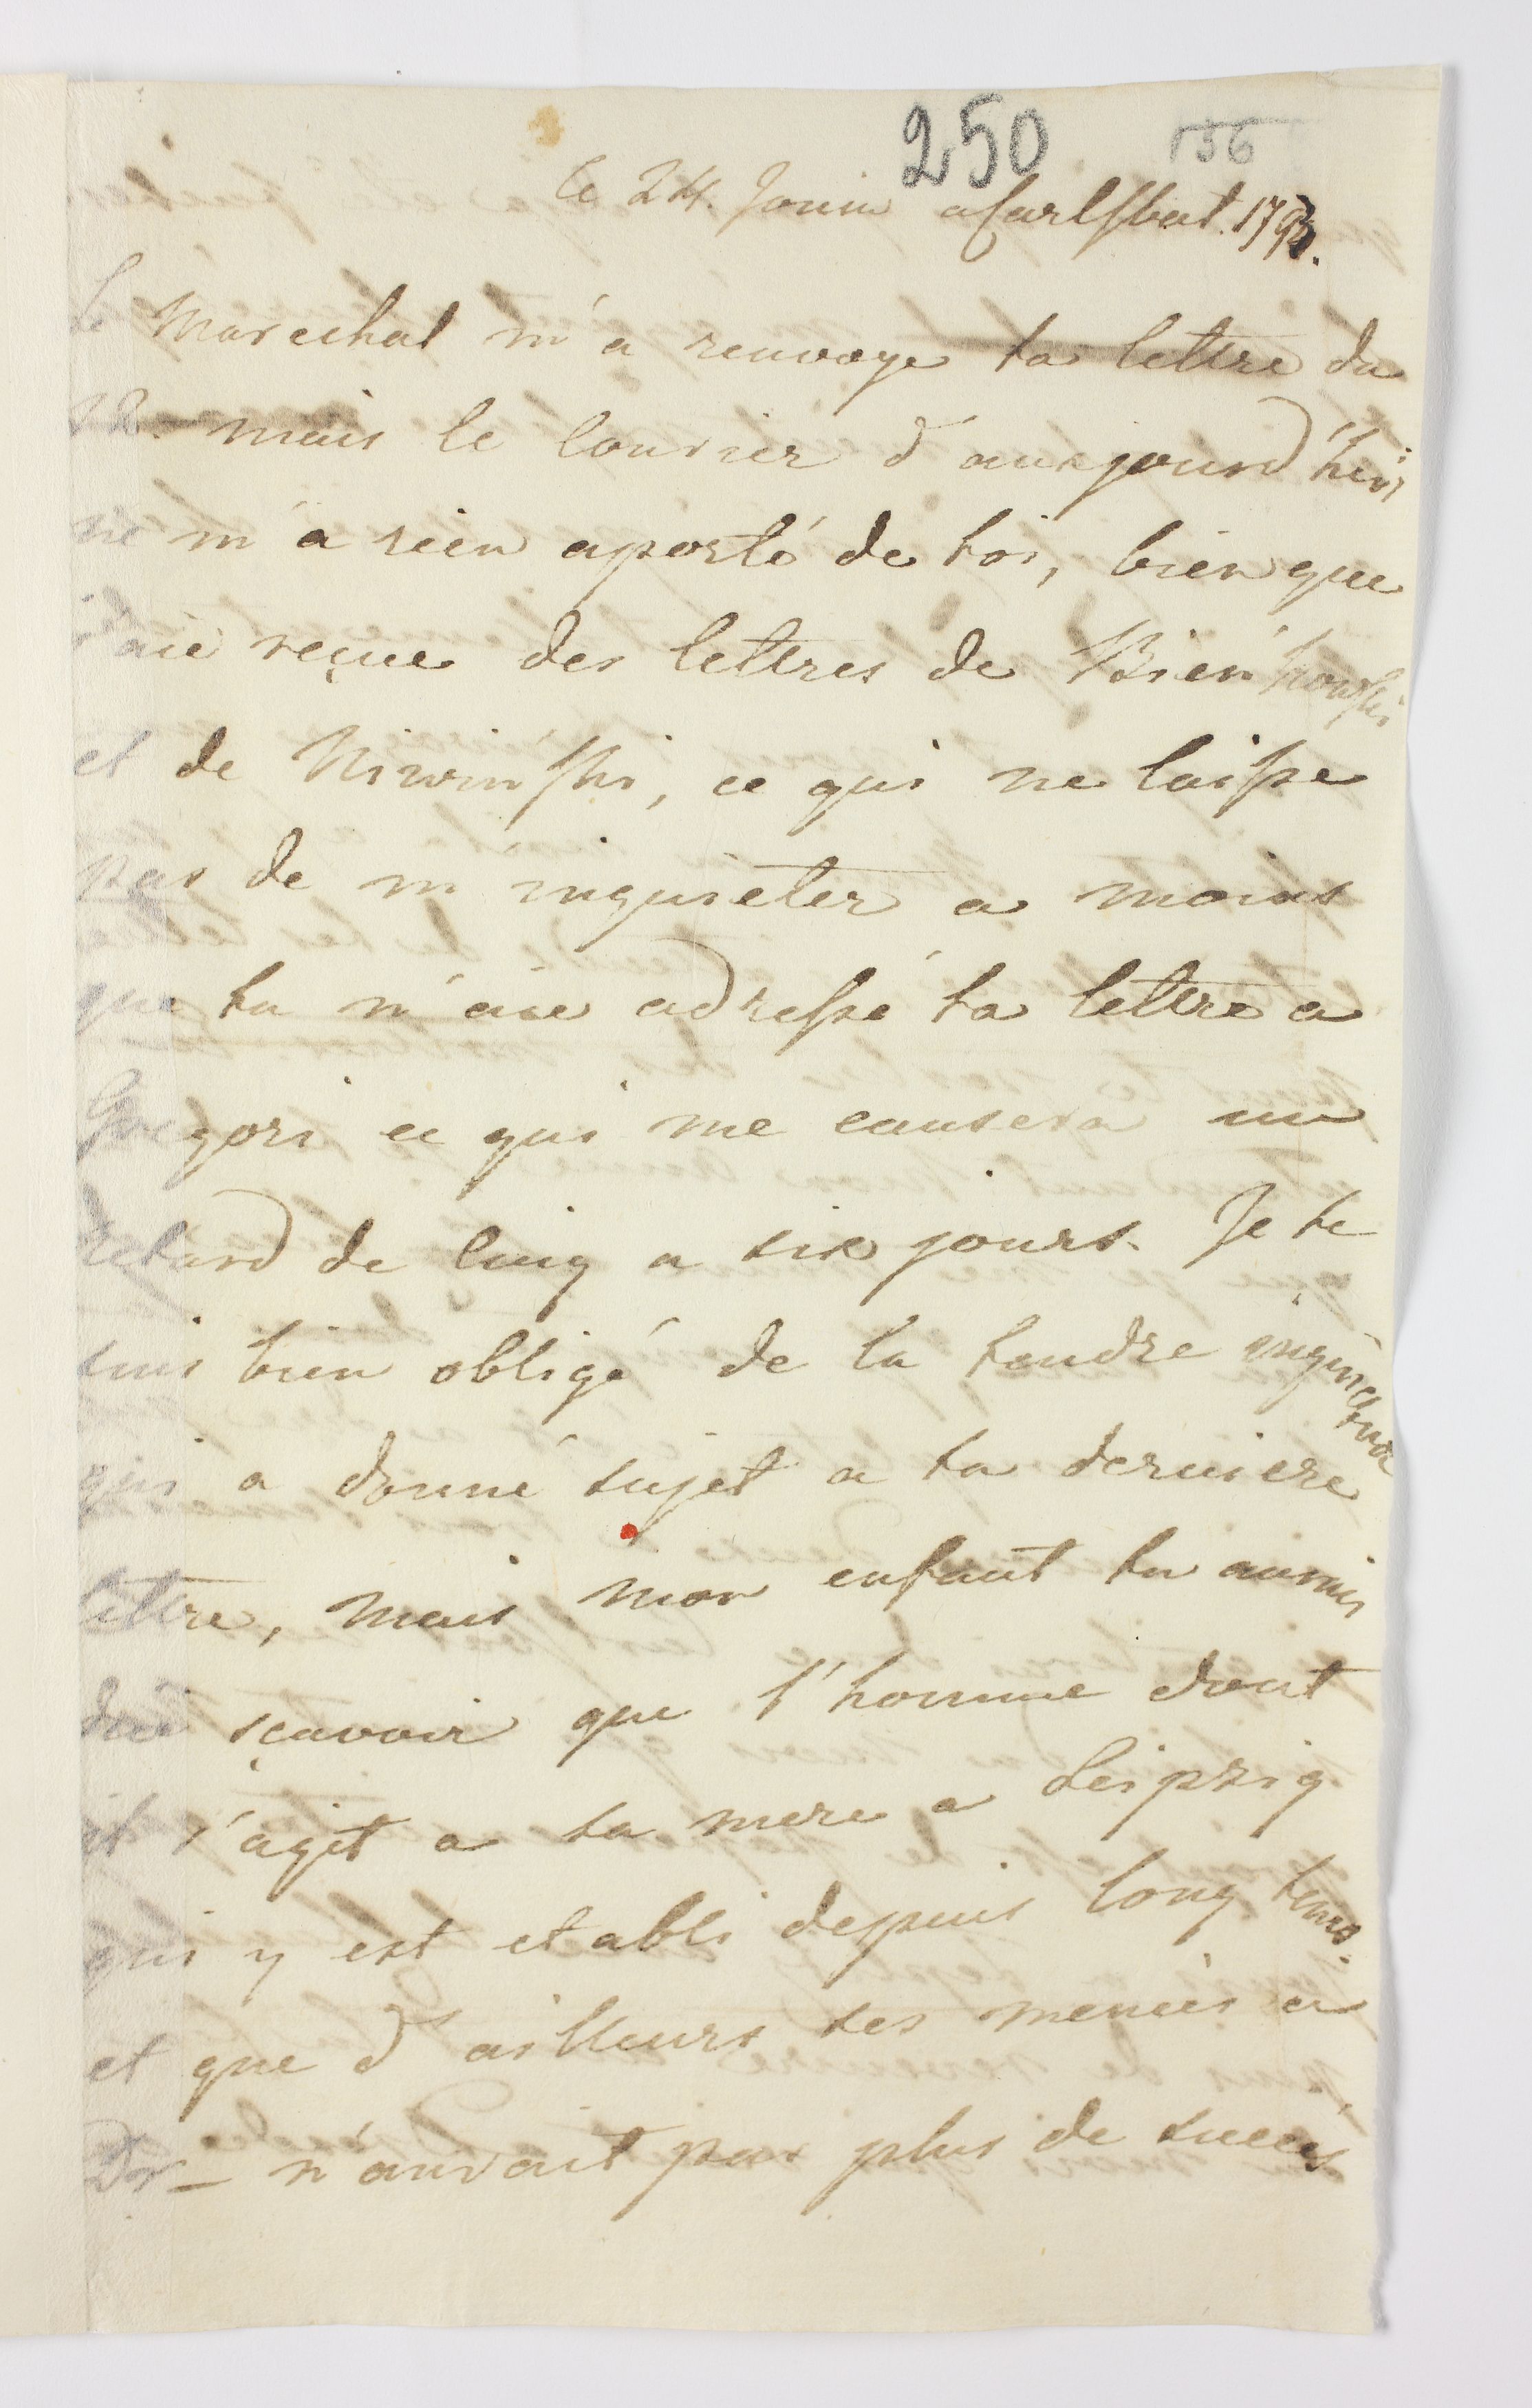 250 156
le 24. Jouin a Carlsbat. 1793.
Le Marechal m'a renvoye ta lettre du
12. mais le Courier d'aujourd'hui
ne m'a rien aporté de toi, bien que
j'aie reçue des lettres de Bieńkowski
et de Niwiński, ce qui ne laisse
pas de m'inquieter a moins
que tu m'aie adressé ta lettre a
Gregori ce qui me causera un
retard de Cinq a six jours. Je te
suis bien obligé de la tendre inquietude
qui a donné sujet a ta derniere
lettre, mais mon enfant tu aurais
dû sçavoir que l'homme dont
it s'agit a sa mere a Leipzig
qui y est etabli depuis long tems.
et que d'ailleurs ses menées a
Dr— n'aurait pas plus de succés